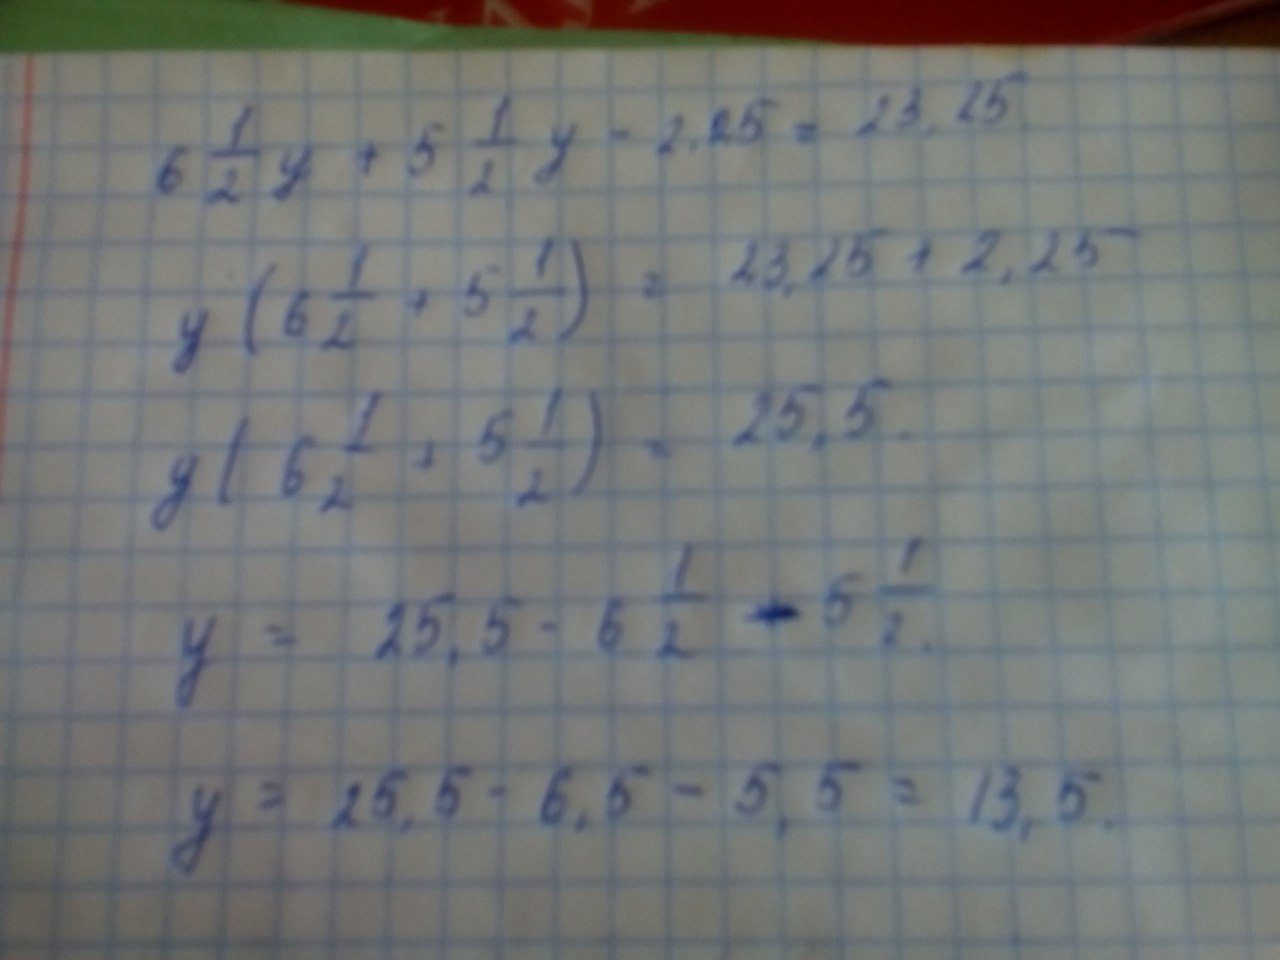 6 1/2 y + 5 1/2 y - 2.25 = 23,25
y (6 1/2 + 5 1/2) = 23,25 + 2,25
y (6 1/2 + 5 1/2) = 25,5.
y = 25,5 - 6 1/2 - 5 1/2.
y = 25,5 - 6,5 - 5,5 = 13,5.